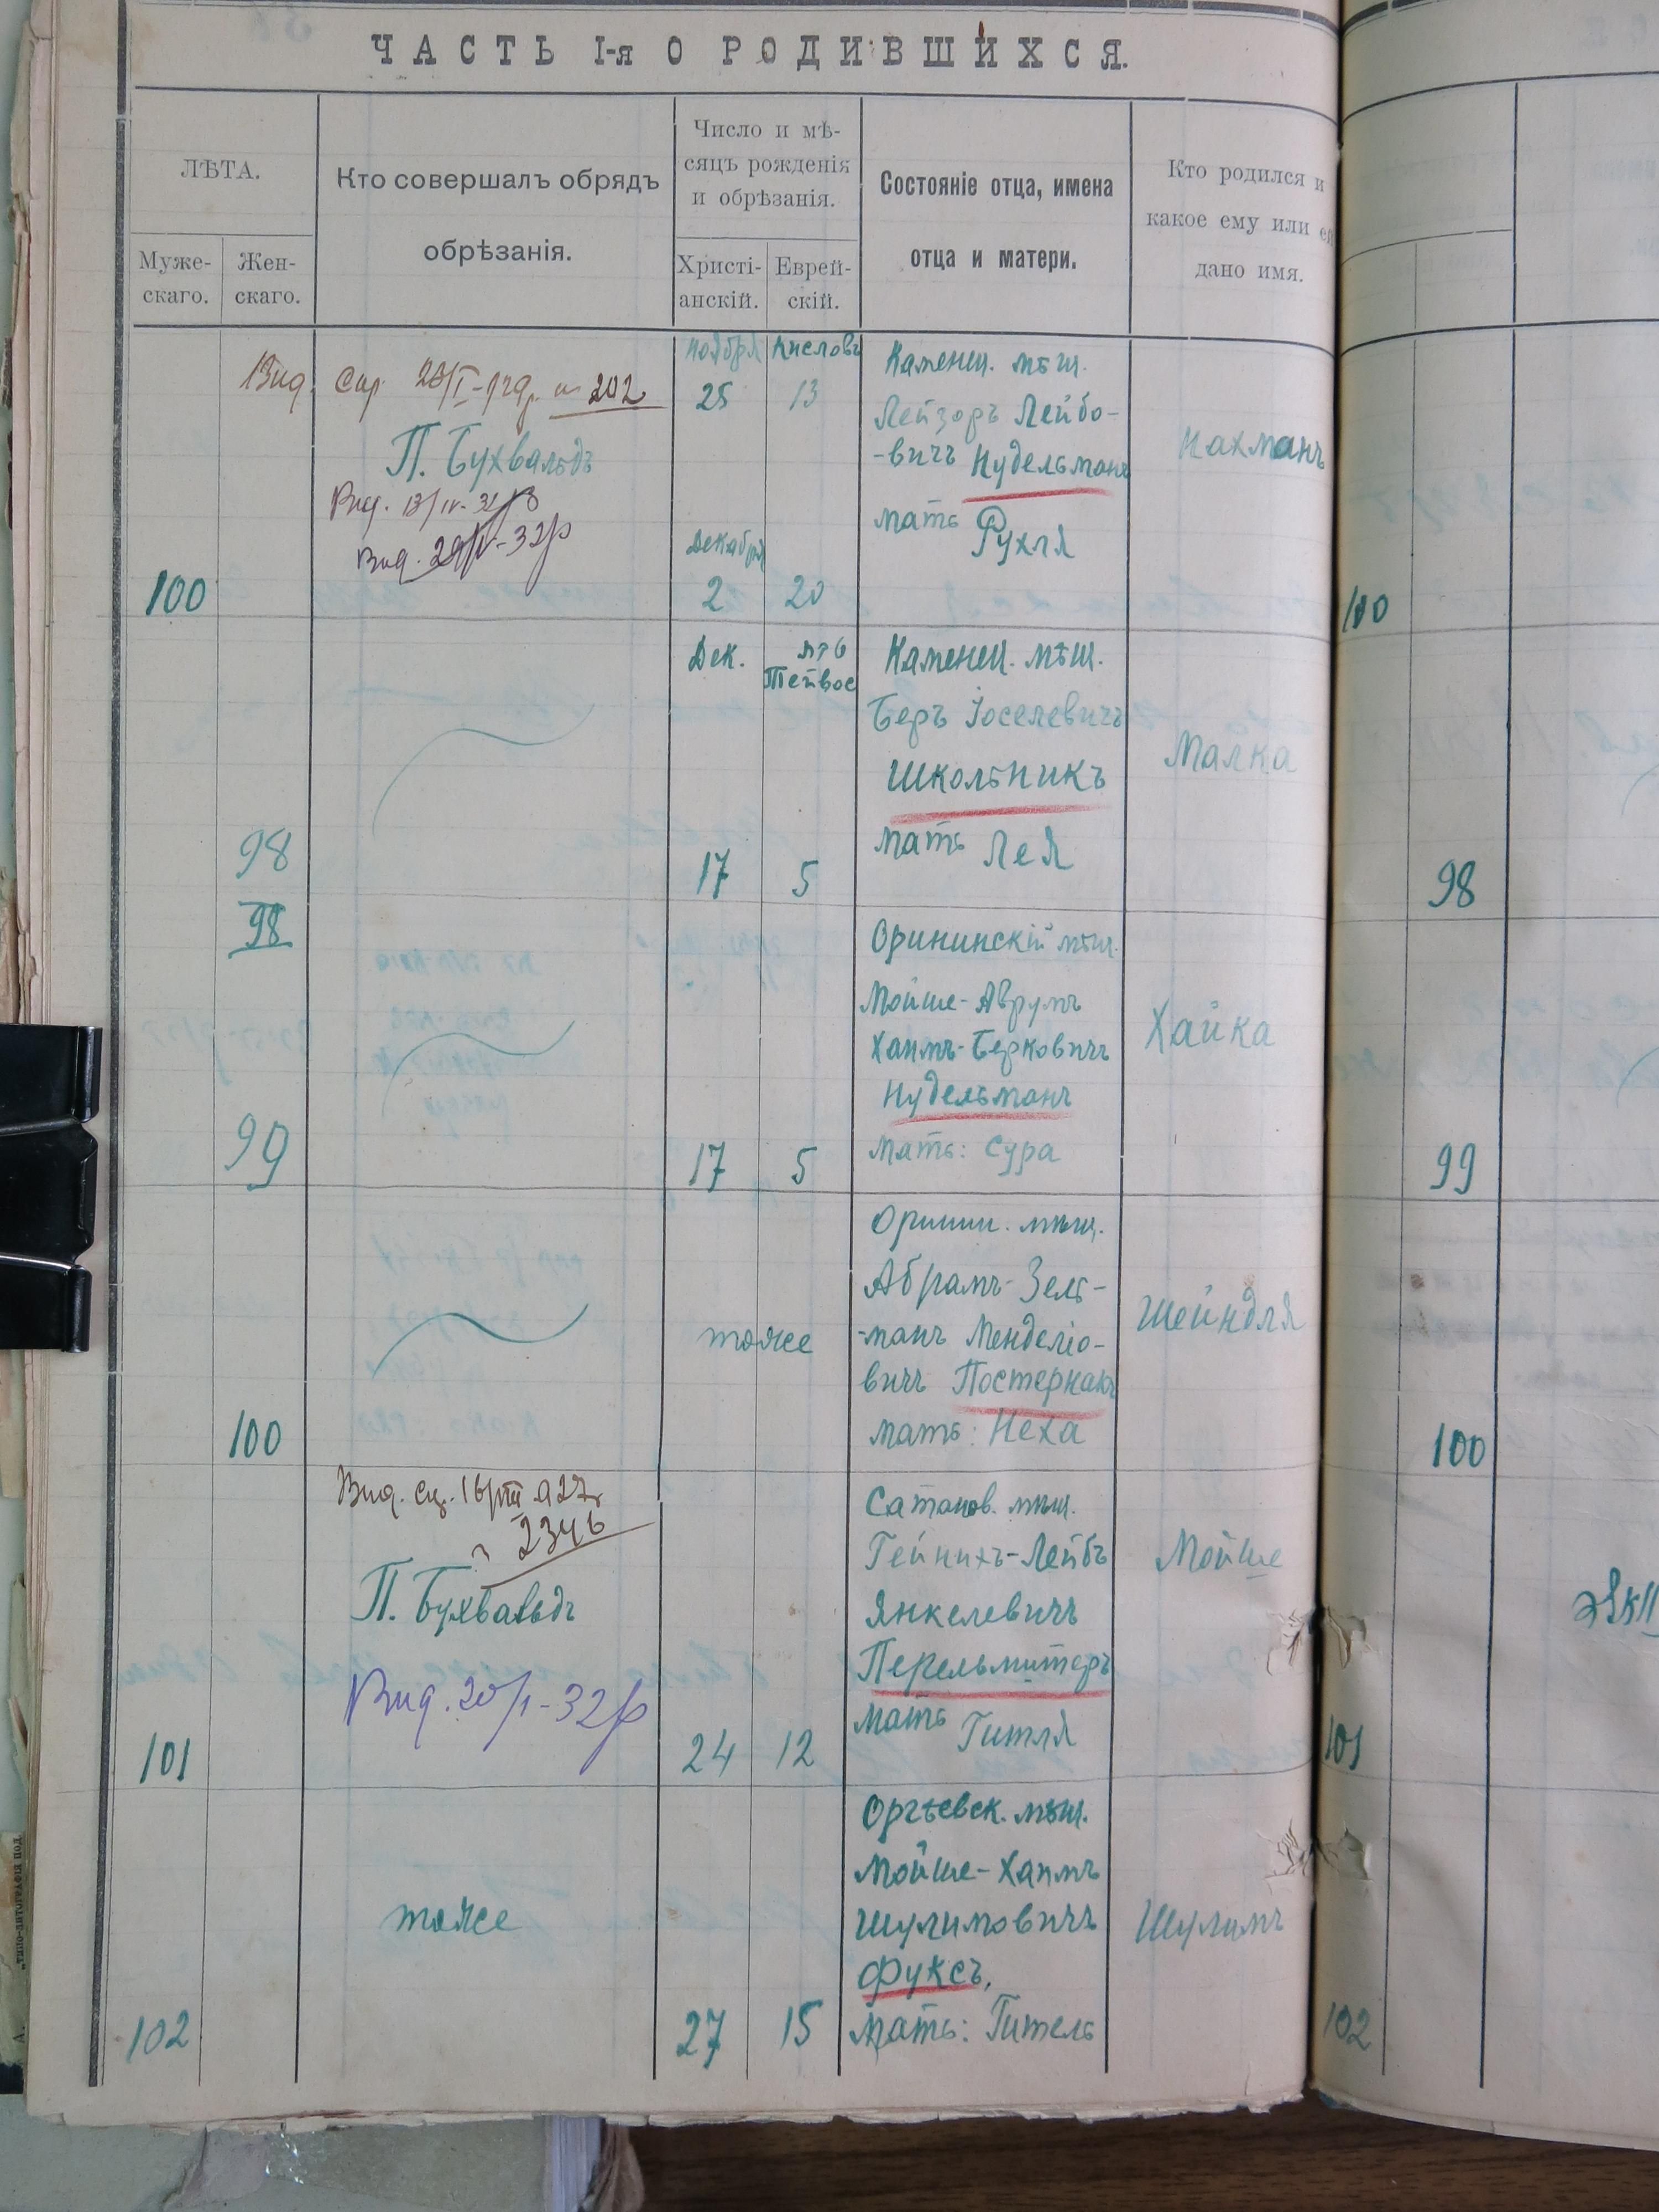 ЧАСТЬ I-я О РОДИВШИХСЯ.
ЛѢТА.
Муже-
скаго.
Жен-
скаго.
Кто совершалъ обрядъ
обрѣзанія.
Число и мѣ-
сяцъ рожденія
и обрѣзанія.
Христі-
анскій.
Еврей-
скій.
Состояніе отца, имена
отца и матери.
Кто родился и
какое ему или ей
дано имя.
100
Вид.
202
П. Бухвальдъ
Вид.
Вид.
Ноября
25
Декабря
2
Кисловъ
13
20
Каменец. мѣщ.
Лейзоръ Лейбо-
-вичъ Нудельманъ
мать Рухля
Нахманъ
100
98
Дек.
17
Тейвос
5
Каменец. мѣщ.
Беръ Іоселевичъ
Школьникъ
мать Лея
Малка
98
98
99
17
5
Орининскій мѣщ.
Мойше-Аврумъ
Хаимъ-Берковичъ
Нудельманъ
мать: Сура
Хайка
99
100
тоже
Оринин. мѣщ.
Абрамъ-Зель-
-манъ Менделіо-
вичъ Постернакъ
мать: Неха
Шейндля
100
101
Вид.
2346
П. Бухвальдъ
Вид. 20/I-32р
24
12
Сатанов. мѣщ.
Гейнихъ-Лейбъ
Янкелевичъ
Перельмитеръ
мать Гитля
Мойше
101
102
тоже
27
15
Оргѣевск. мѣщ.
Мойше-Хаимъ
Шулимовичъ
Фуксъ,
мать: Гитель
Шулимъ
102